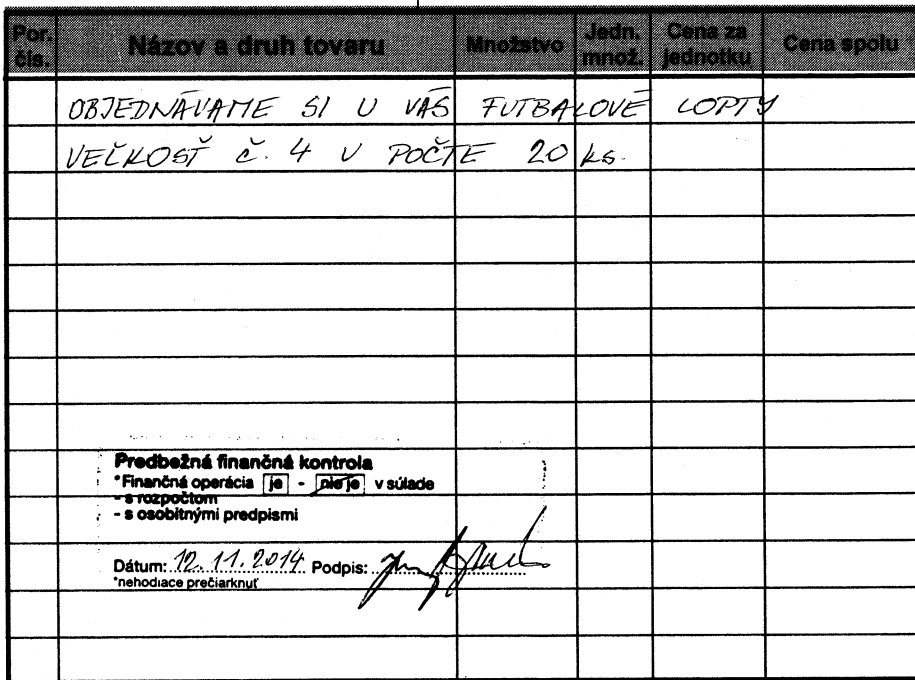 Por. čís. Názov a druh tovaru Množstvo Jedn. množ. Cena za jednotku Cena spolu
OBJEDNÁVAME SI U VÁS FUTBALOVÉ LOPTY
VEĽKOSŤ č. 4 V POČTE 20 ks.
Predbežná finančná kontrola
*Finančná operácia je - nie je v súlade
- s rozpočtom
- s osobitnými predpismi
Dátum: 12. 11. 2014 Podpis:
*nehodiace prečiarknuť